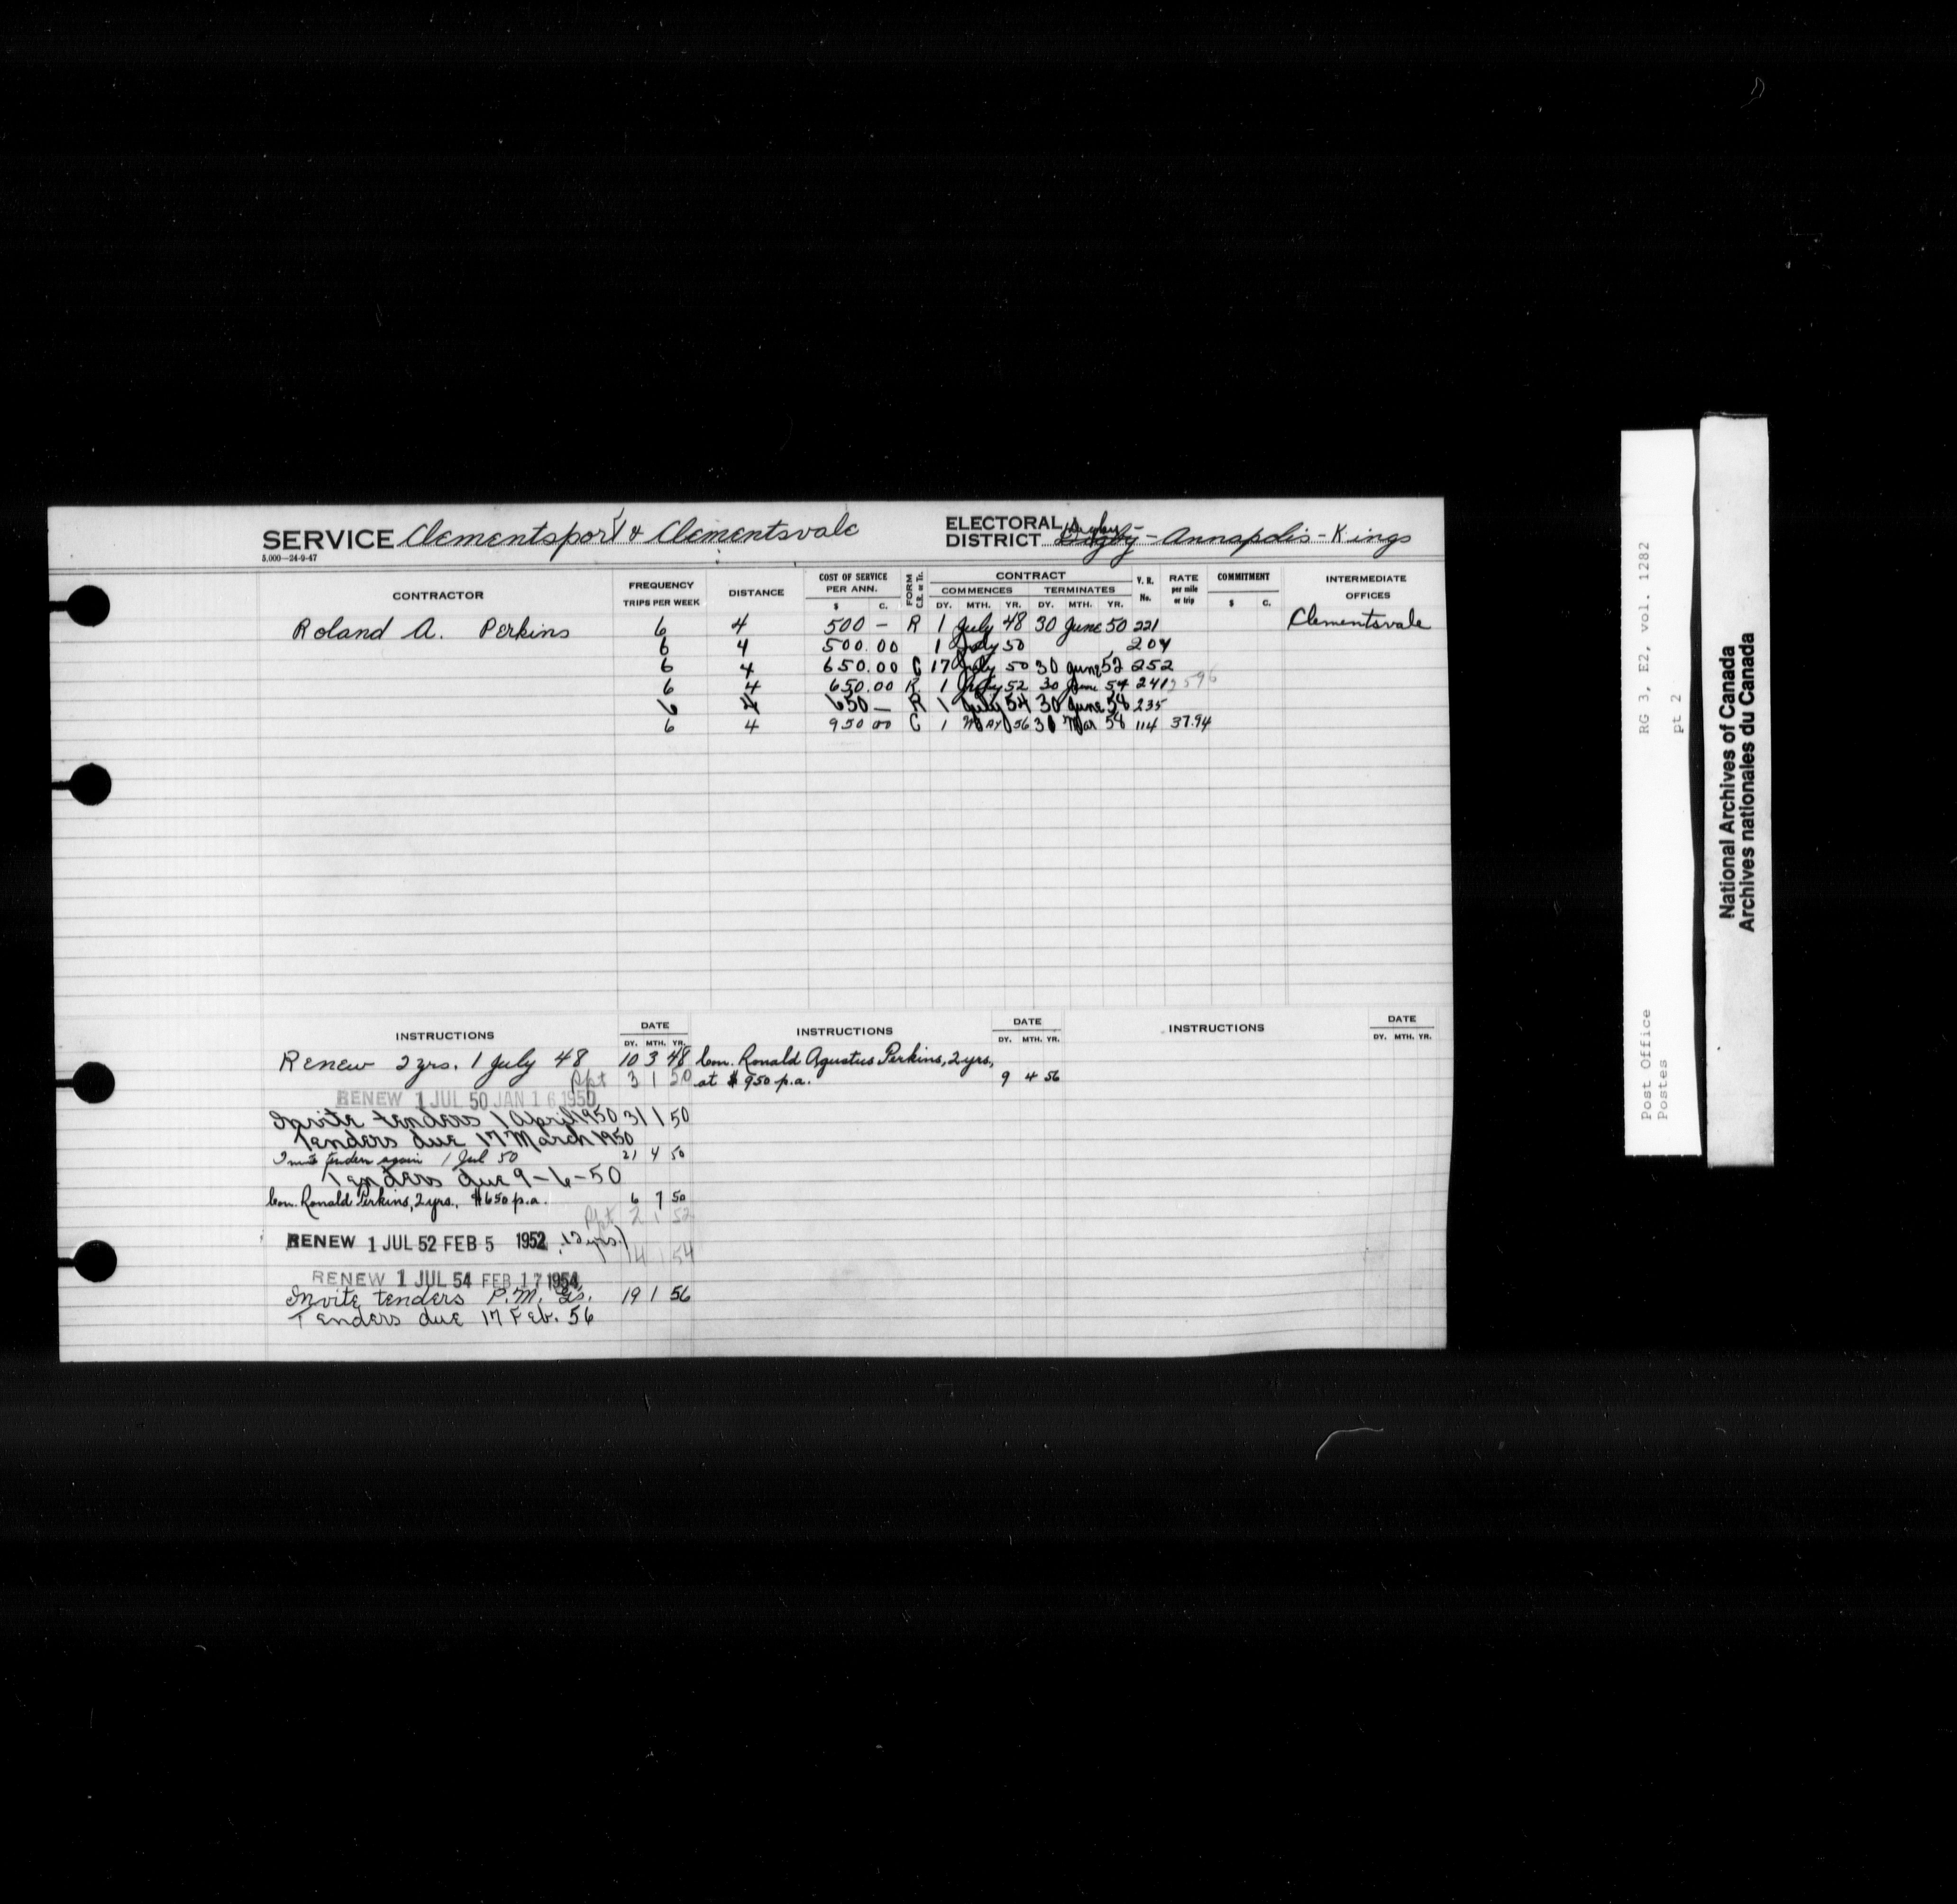 SERVICE Clementsport & Clementsvale
5,000—24-9-47
ELECTORAL DISTRICT Digby - Annapolis - Kings
CONTRACTOR FREQUENCY TRIPS PER WEEK DISTANCE COST OF SERVICE PER ANN. $ C. FORM C.R. or Tr. CONTRACT COMMENCES DY. MTH. YR. TERMINATES DY. MTH. YR. V. R. No. RATE per mile or trip COMMITMENT $ C. INTERMEDIATE OFFICES
Roland A. Perkins 6 4 500 — R 1 July 48 30 June 50 221 Clementsvale
6 4 500.00 1 July 50 204
6 4 650.00 C 17 July 50 30 June 52 252
6 4 650.00 R 1 July 52 30 June 54 241 2596
6 4 650 — R 1 July 54 30 June 58 235
6 4 950 00 C 1 May 56 31 Mar 58 114 37.94
INSTRUCTIONS DATE DY. MTH. YR.
Renew 2 yrs. 1 July 48 10 3 48
Rpt 3 1 50
RENEW 1 JUL 50 JAN 16 1950
Invite tenders 1 April 1950 31 1 50
Tenders due 17 March 1950
Invite tenders again 1 Jul 50 21 4 50
Tenders due 9-6-50
Con. Ronald Perkins, 2 yrs., $650 p.a. 6 7 50
Rpt 2 1 52
RENEW 1 JUL 52 FEB 5 1952 (2 yrs.)
14 1 54
RENEW 1 JUL 54 FEB 17 1954
Invite tenders P.M. Gs. 19 1 56
Tenders due 17 Feb. 56
INSTRUCTIONS DATE DY. MTH. YR.
Con. Ronald Agustus Perkins, 2 yrs,
at $950 p.a. 9 4 56
INSTRUCTIONS DATE DY. MTH. YR.
Post Office RG 3, E2, vol. 1282
Postes pt 2
National Archives of Canada
Archives nationales du Canada